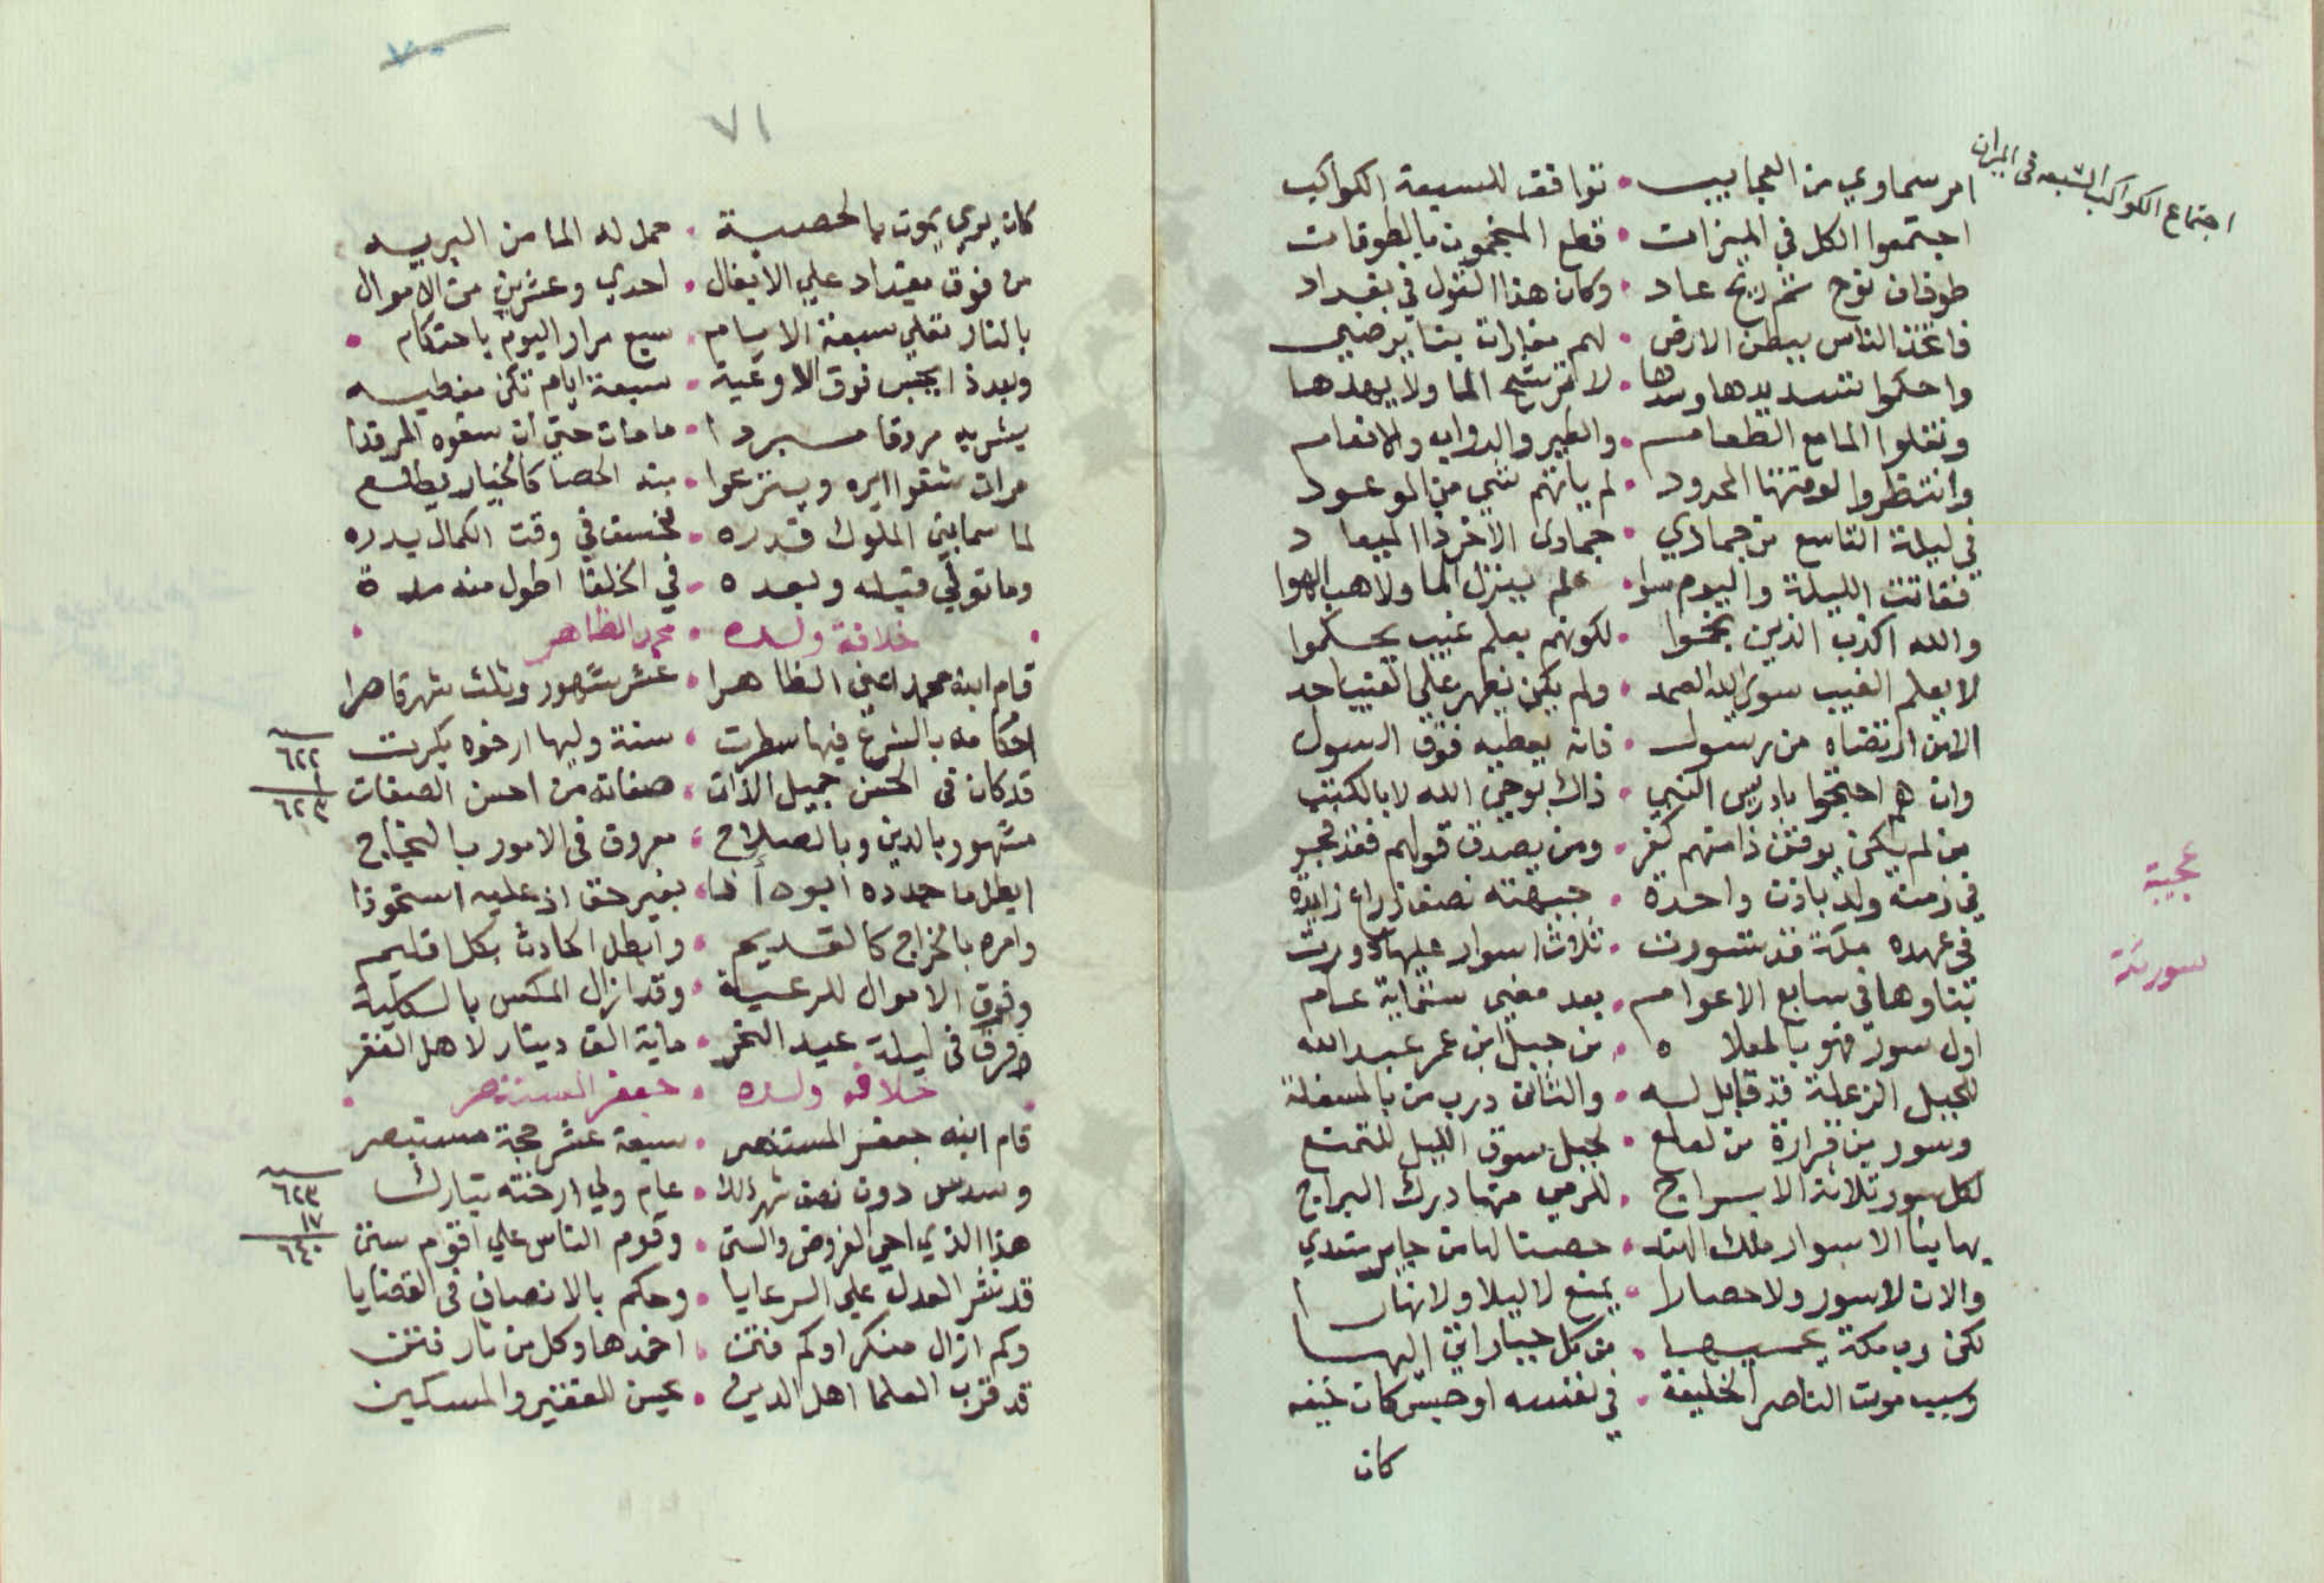 اجتماع الكواكب السبعه فى الميزان
امر سماوي من العجايب • توافقت للسبعة الكواكب
اجتمعوا الكل في الميزان • قطع المنجمون بالطوفان
طوفان نوح ثم ريح عاد • وكان هذا القول في بغداد
فاتخذ الناس ببطن الارض • لهم مغارات بنا يرضي
واحكموا تسديدها وسدها • لا ترشح الما ولا يهدها
ونقلوا الما مع الطعام • والطير والدواب والانعام
وانتظروا لوقتها المحدود • لم ياتهم شي من الموعود
في ليلة التاسع من جمادي • جمادى الاخر ذا الميعاد
ففاتت الليلة واليوم سوا • فلم ينزل الما ولا هب الهوا
والله اكذب الذين نجموا • لكونهم بعلم غيب يحكموا
لا يعلم الغيب سوى الله الصمد • ولم يكن يظهر على الغيب احد
الا من ارتضاه من رسول • فانه يعطيه فوق السول
وان هم احتجوا بادريس النبي • ذاك بوحي الله لا بالكتب
من لم يكن يوقن ذا منهم كفر • ومن يصدق قولهم فقد فجر
عجيبة
في زمنه ولد باذن واحدة • جبهته نصف ذراع زايدة
سور مكة
في عهده مكة قد تسورت • ثلاث اسوار عليها دورت
بناوها في سابع الاعوام • بعد مضي ستماية عام
اول سور فهو بالمعلاه • من جبل ابن عمر عبد الله
للجبل الزعلة قد قابل له • والثان درب من بالمسفلة
وسور من قرارة من لعلع • لجبل سوق الليل للتمتع
لكل سور ثلاثة الابراج • للرمي منها دبرك البراج
بها بنا الاسوار ملك الهند • حصنا لها من جاير متعدي
والان لا سور ولا حصارا • يمنع لا ليلا ولا نهارا
لكن رب مكة يحميها • من كل جبار اتى اليها
وسبب موت الناصر الخليفة • في نفسه اوحس كان خيفه
كان
٧١
كان يري يموت بالحصبة • حمل له الما من البريه
من فوق بغداد علي الابغال • احدي وعشرين من الاموال
بالنار تغلي سبعة الايام • سبع مرار اليوم باحتكام •
وبعد ذا يحبس فوق الاوعية • سبعة ايام تكن مغطيه
يشربه مروقا مبردا • ما مات حتى ان سقوه المرقدا
مرات شقوا ايره وينزعوا • منه الحصا كالخيار يطلع
لما سما بين الملوك قدره • خسف في وقت الكمال بدره
وما تولي قبله وبعده • في الخلفا اطول منه مدة
• خلافة ولده • محمد الظاهر •
قام ابنه محمد اعني الظاهرا • عشر شهور وثلث شهر قاصرا
احكامه بالشرع فيها سطرت • سنة وليها ارخوه بكربت ٦٢٢
قد كان في الحسن جميل الذات • صفاته من احسن الصفات ٦٢٣
مشهور بالدين وبالصلاح • معروف في الامور بالنجاح
ابطل ما جدده ابوه اذا • بغير حق اذ عليه استحوذا
وامره بالخراج كالقديم • وابطل الحادث بكل اقليم
وفرق الاموال للرعية • وقد ازال المكس بالكلية
وفرق في ليلة عيد النحر • ماية الف دينار لاهل الفقر
• خلافه ولده • جعفر المستنصر •
قام ابنه جعفر المستنصر • سبعة عشر حجة مستبصر
وسدس دون نصف شهر ذلك • عام ولي ارخته بتبارك ٦٢٣
١٧
هذا الذي احي الفروض والسنن • وقوم الناس علي اقوام سنن ٦٤٠
قد نشر العدل علي الرعايا • وحكم بالانصاف في القضايا
وكم ازال منكرا وكم فتن • اخمدها وكل من ثار فتن
قد قرب العلما اهل الدين • محسن للفقير والمسكين